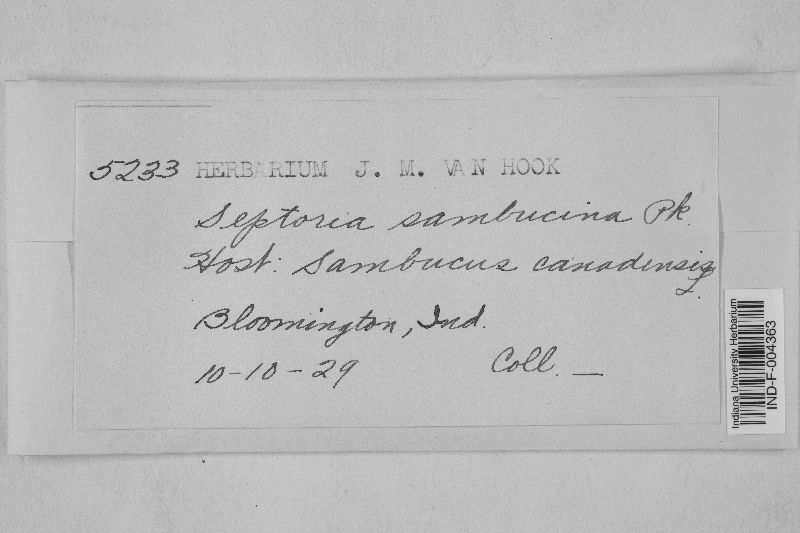 5233 HERBARIUM J. M. VAN HOOK
Septoria sambucina Pk.
Host: Sambucus canadensis
L.
Bloomington, Ind.
10-10-29 Coll. —
Indiana University Herbarium
IND-F-004363